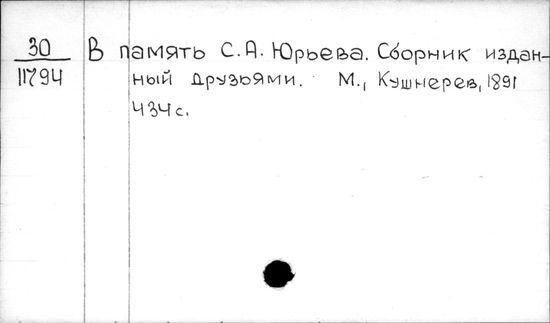 30 В память С.А. Юрьева. Сборник издан-
11794 ный друзьями. М., Кушнерев, 1891
434 с.